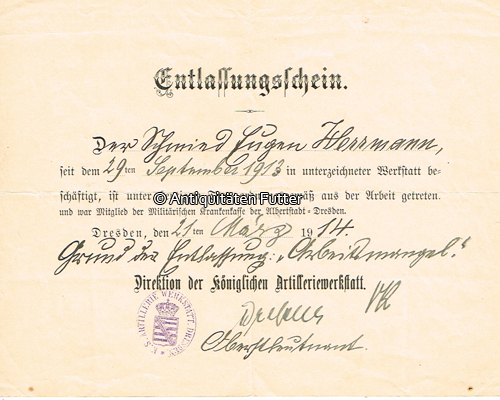 Entlassungsschein.
Der Schmied Eugen Herrmann,
seit dem 29ten September 1913 in unterzeichneter Werkstatt be-
© Antiquitäten Futter
schäftigt, ist unter aus der Arbeit getreten
und war Mitglied der Militärischen Krankenkasse der Albertstadt-Dresden.
Dresden, den 21ten März 1914.
Grund der Entlassung: „Arbeitsmangel."
Direktion der Königlichen Artilleriewerkstatt.
Oberstleutnant.
ARTILLERIE WERKSTATT DRESDEN